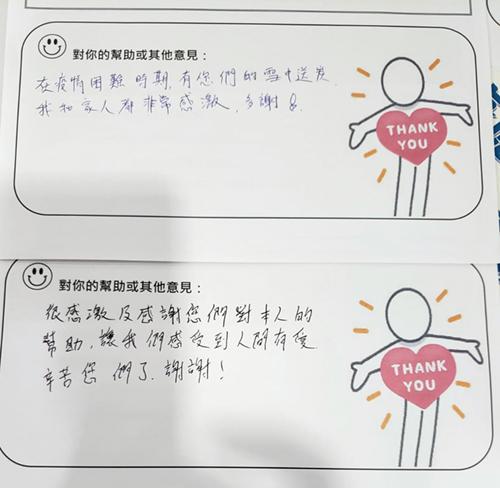 對你的幫助或其他意見：
在疫情困難時期,有您們的雪中送炭.
我和家人都非常感激,多謝
THANK
YOU
對你的幫助或其他意見：
很感激及感謝您們對本人的
幫助,讓我們感受到人間有愛
辛苦您們了.謝謝!
THANK
YOU